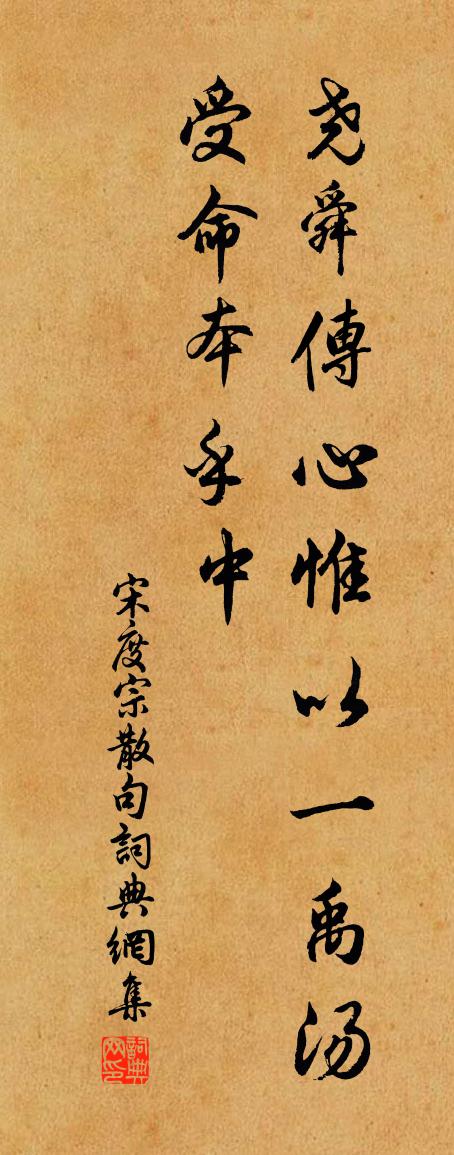 尧舜傳心惟以一禹汤
受命本乎中
宋度宗散句詞典網集
詞典网印